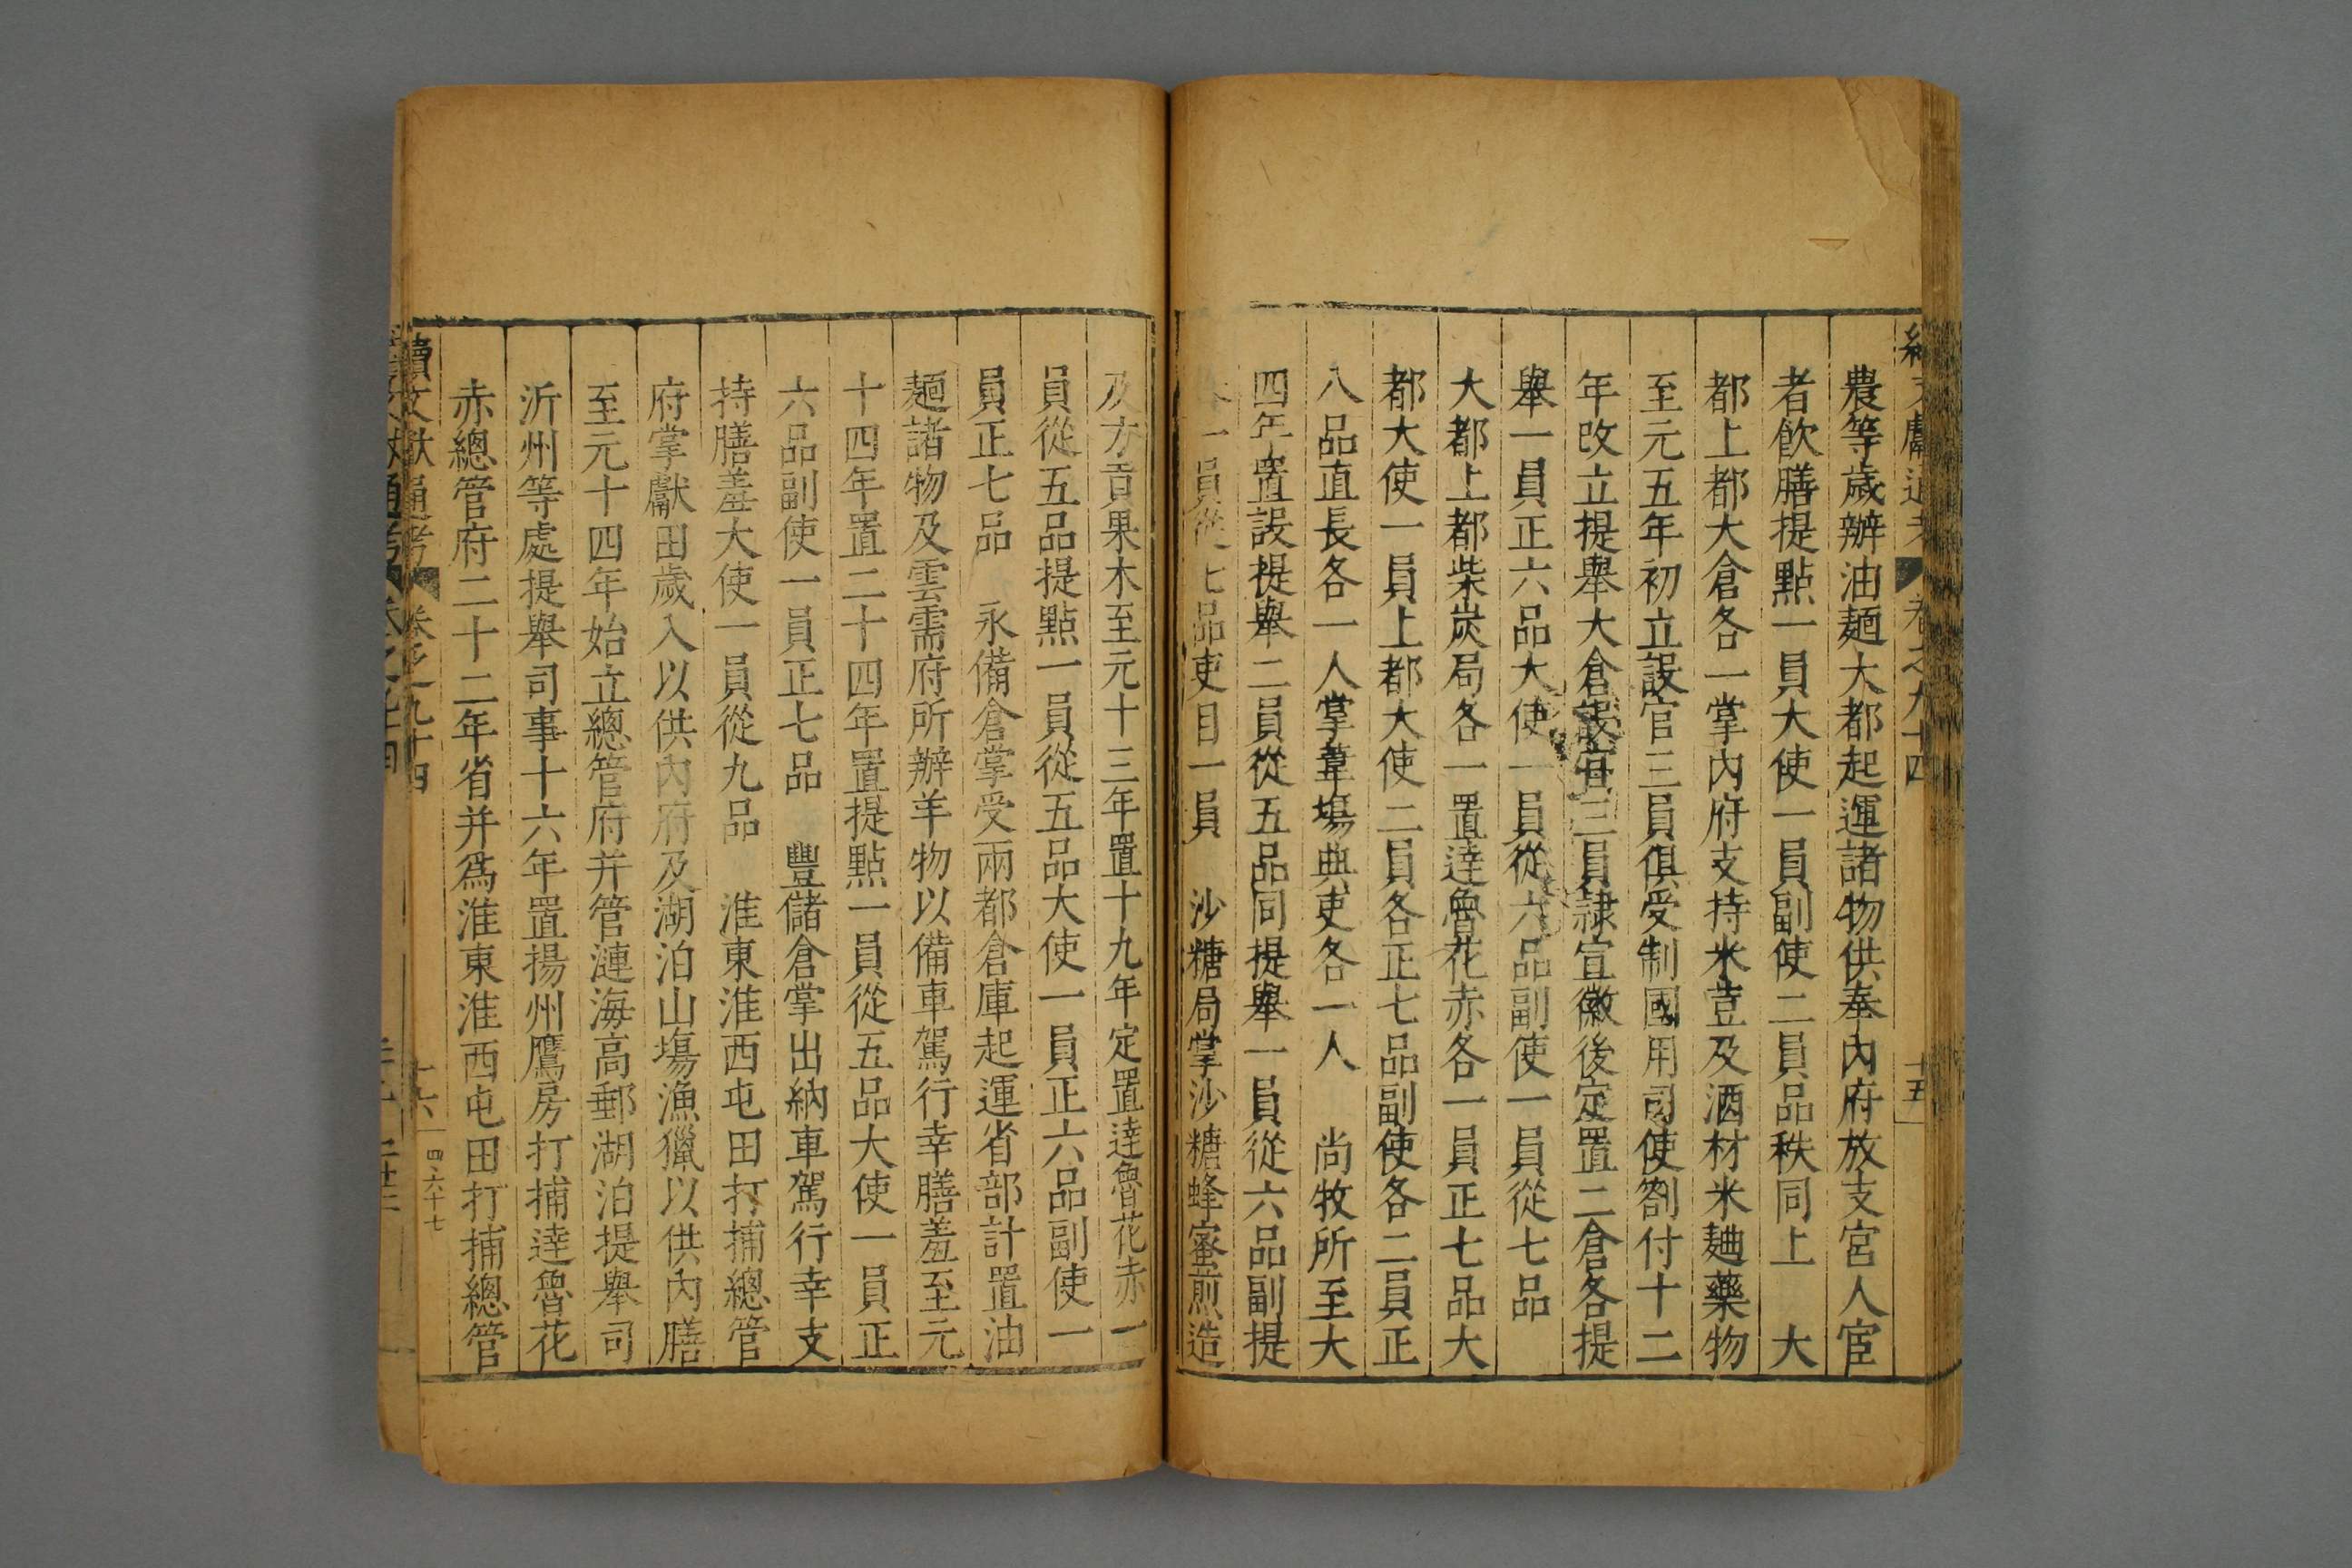 續文獻通考 卷之九十四 十五
農等歲辦油麺大都起運諸物供奉內府放支宮人宦
者飲膳提點一員大使一員副使二員品秩同上 大
都上都大倉各一掌內府支持米荳及酒材米麯藥物
至元五年初立設官三員俱受制國用司使劄付十二
年改立提舉大倉設官三員隸宣徽後定置二倉各提
舉一員正六品大使一員從六品副使一員從七品
大都上都柴炭局各一置達魯花赤各一員正七品大
都大使一員上都大使二員各正七品副使各二員正
八品直長各一人掌葦場典吏各一人 尚牧所至大
四年置設提舉二員從五品同提舉一員從六品副提
舉一員從七品吏目一員 沙糖局掌沙糖蜂蜜煎造
及方貢果木至元十三年置十九年定置達魯花赤一
員從五品提點一員從五品大使一員正六品副使一
員正七品 永備倉掌受兩都倉庫起運省部計置油
麺諸物及雲需府所辦羊物以備車駕行幸膳羞至元
十四年置二十四年置提點一員從五品大使一員正
六品副使一員正七品 豐儲倉掌出納車駕行幸支
持膳羞大使一員從九品 淮東淮西屯田打捕總管
府掌獻田歲入以供內府及湖泊山塲漁獵以供內膳
至元十四年始立總管府并管漣海高郵湖泊提舉司
沂州等處提舉司事十六年置揚州鷹房打捕達魯花
赤總管府二十二年省并爲淮東淮西屯田打捕總管
續文獻通考 卷之九十四 十六 四六十七